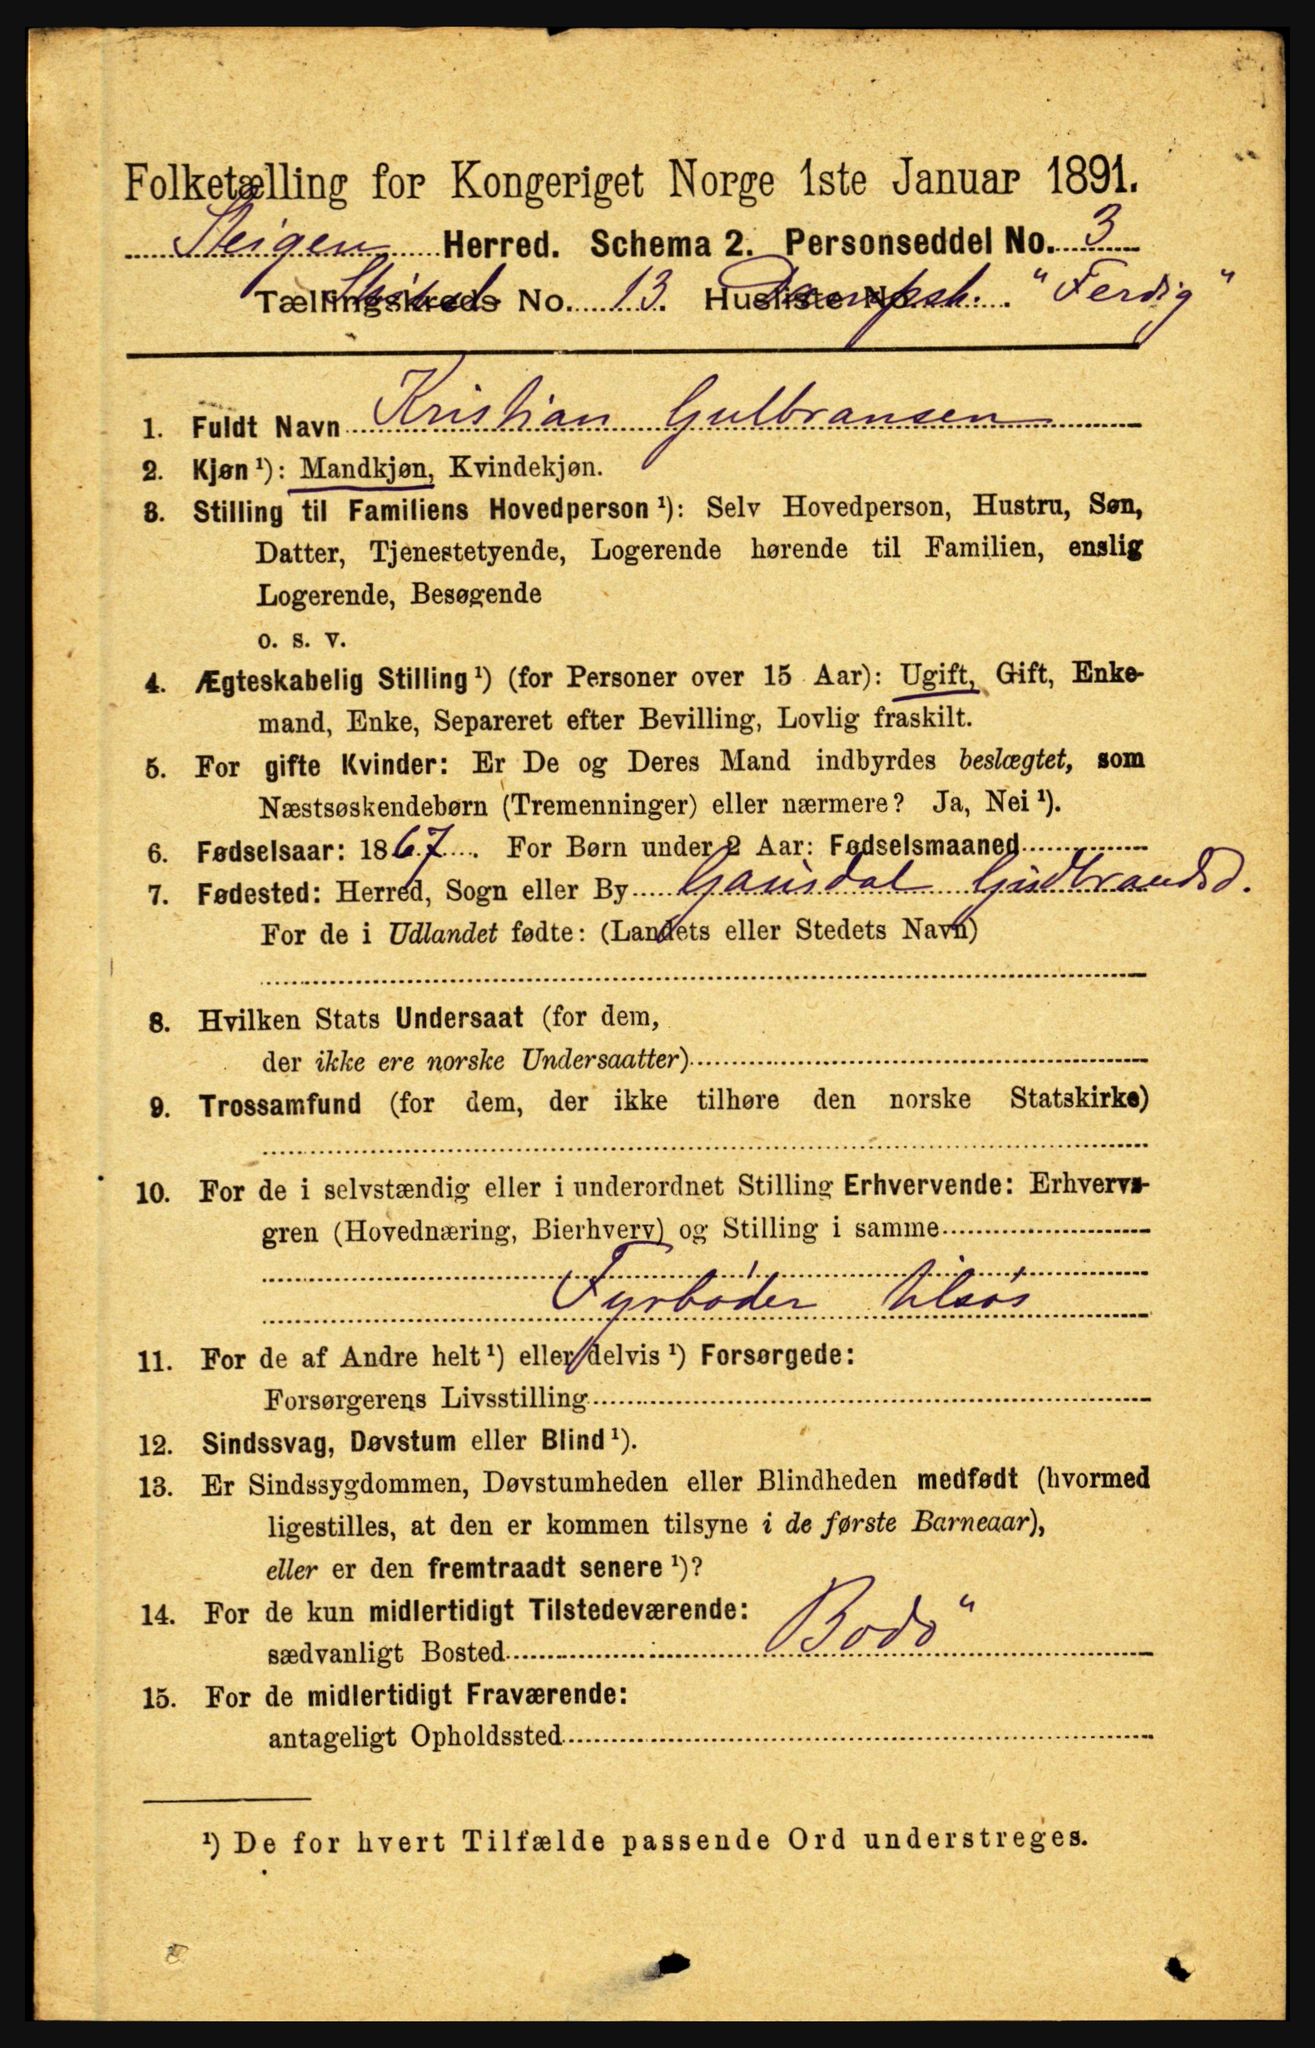 Folketælling for Kongeriget Norge 1ste Januar 1891.
Steigen Herred. Schema 2. Personseddel No. 3
Tællingskreds No. 13. Husliste No. Dampsk. "Ferdig"
1. Fuldt Navn Kristian Gulbransen
2. Kjøn ¹): Mandkjøn, Kvindekjøn.
3. Stilling til Familiens Hovedperson ¹): Selv Hovedperson, Hustru, Søn,
Datter, Tjenestetyende, Logerende hørende til Familien, enslig
Logerende, Besøgende
o. s. v.
4. Ægteskabelig Stilling ¹) (for Personer over 15 Aar): Ugift, Gift, Enke-
mand, Enke, Separeret efter Bevilling, Lovlig fraskilt.
5. For gifte Kvinder: Er De og Deres Mand indbyrdes beslægtet, som
Næstsøskendebørn (Tremenninger) eller nærmere? Ja, Nei ¹).
6. Fødselsaar: 1867. For Børn under 2 Aar: Fødselsmaaned
7. Fødested: Herred, Sogn eller By Gausdal Gudbrandsd.
For de i Udlandet fødte: (Landets eller Stedets Navn)
8. Hvilken Stats Undersaat (for dem,
der ikke ere norske Undersaatter)
9. Trossamfund (for dem, der ikke tilhøre den norske Statskirke)
10. For de i selvstændig eller i underordnet Stilling Erhvervende: Erhvervs-
gren (Hovednæring, Bierhverv) og Stilling i samme
Fyrbøder tilsøs
11. For de af Andre helt ¹) eller delvis ¹) Forsørgede:
Forsørgerens Livsstilling
12. Sindssvag, Døvstum eller Blind ¹).
13. Er Sindssygdommen, Døvstumheden eller Blindheden medfødt (hvormed
ligestilles, at den er kommen tilsyne i de første Barneaar),
eller er den fremtraadt senere ¹)?
14. For de kun midlertidigt Tilstedeværende:
sædvanligt Bosted Bodö
15. For de midlertidigt Fraværende:
antageligt Opholdssted
¹) De for hvert Tilfælde passende Ord understreges.